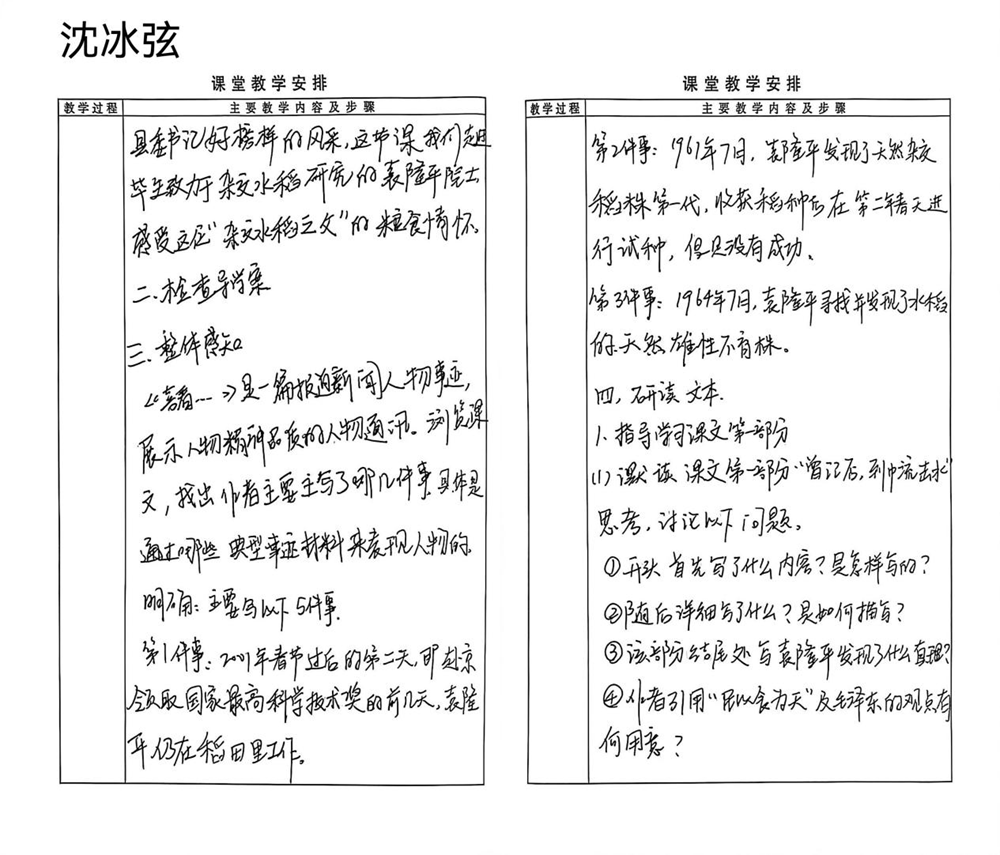 沈冰弦
课堂教学安排
教学过程
主要教学内容及步骤
县委书记好榜样的风采,这节课我们走进
毕生致力于杂交水稻研究的袁隆平院士
感受这位“杂交水稻之父”的粮食情怀。
二、检查导学案
三、整体感知
《喜看……》是一篇报道新闻人物事迹,
展示人物精神品质的人物通讯。浏览课
文,找出作者主要主写了哪几件事,具体是
通过哪些典型事迹材料来表现人物的。
明确:主要写以下5件事。
第1件事:2001年春节过后的第二天,即赴京
领取国家最高科学技术奖的前几天,袁隆
平仍在稻田里工作。
课堂教学安排
教学过程
主要教学内容及步骤
第2件事:1961年7月,袁隆平发现了天然杂交
稻株第一代,收获稻种后在第二年春天进
行试种,但只没有成功。
第3件事:1964年7月,袁隆平寻找并发现了水稻
的天然雄性不育株。
四、研读文本.
1.指导学习课文第一部分
(1)默读课文第一部分“曾记否,到中流击水”
思考,讨论以下问题。
①开头首先写了什么内容?是怎样写的?
②随后详细写了什么?是如何描写?
③该部分结尾处写袁隆平发现了什么真理?
④作者引用“民以食为天”及毛泽东的观点有
何用意?